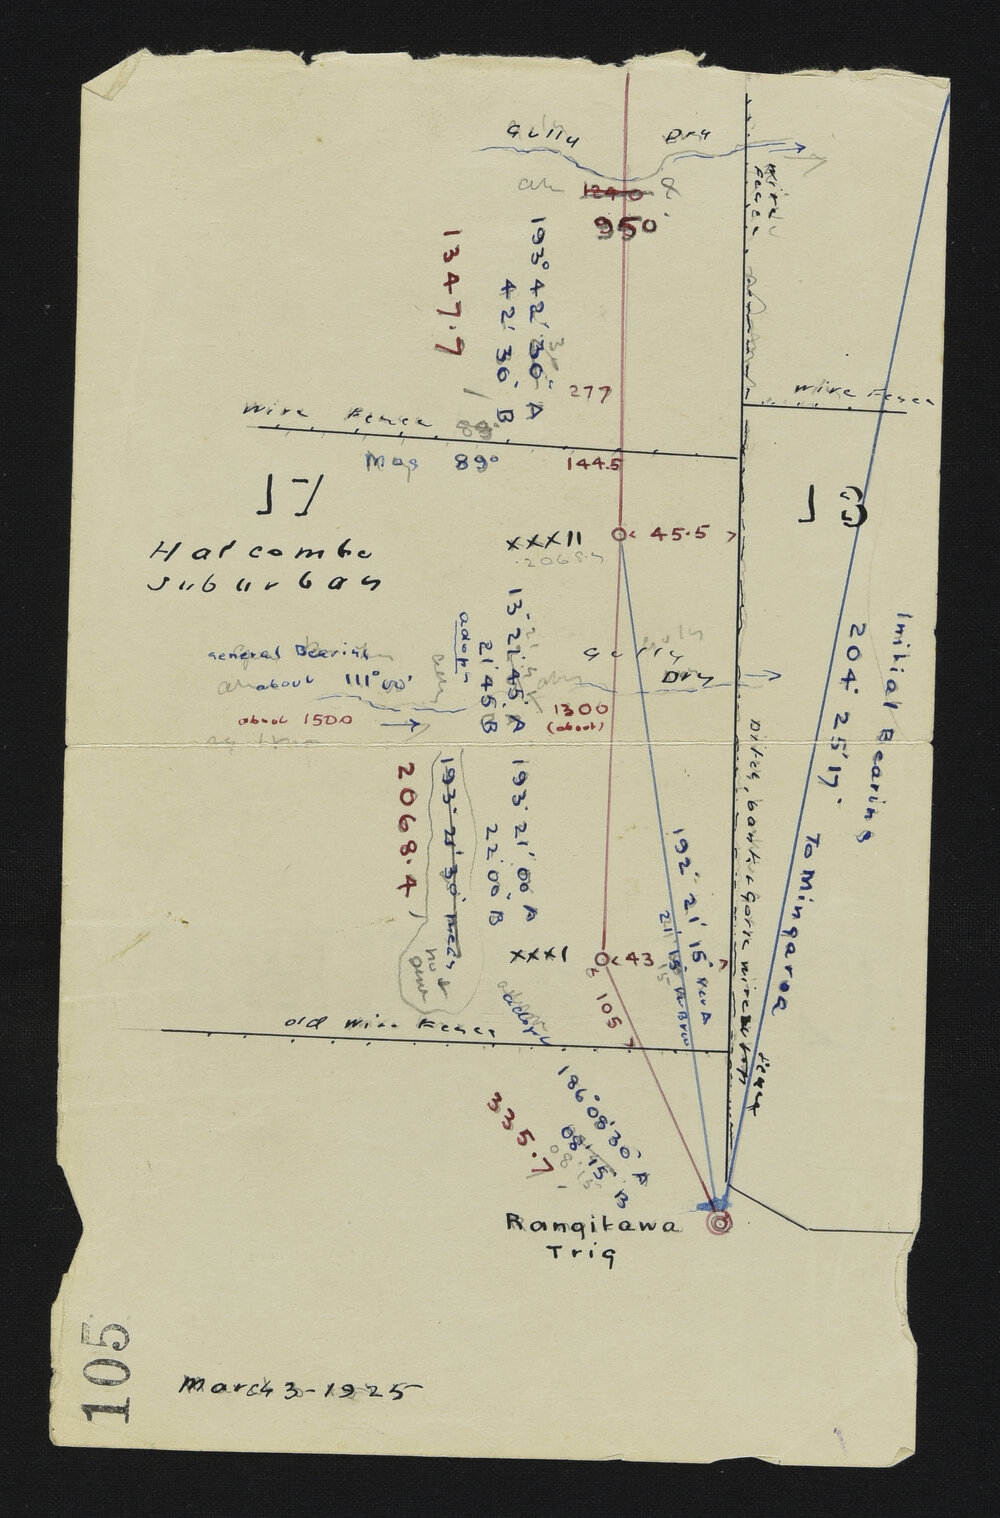 Gully Dry
1240
950
Wire Fence
193° 42' 30" A
42' 30" B
1347.7
277
Wire Fence
Wire Fence
88°
Mag 89°
144.5
17
18
Halcombe
Suburban
XXXII
2068.4
45.5
13' 21' 45" A
21' 45" B
adopt
Gully
Dry
General Bearing
about 111° 50'
about 1500
1300
(about)
Initial Bearing
204° 25' 17"
To Mingaroa
193° 21' 00" A
22' 00" B
193° 21' 30" mean
not
2068.4
192° 21' 15" A
21' 15"
Ditch, bank + gorse wire on top
fence
XXXI
43
105
adopt
Old Wire Fence
186° 08' 30" A
08' 45" B
08' 15"
335.7
Rangitawa
Trig
105
March 3 - 1925